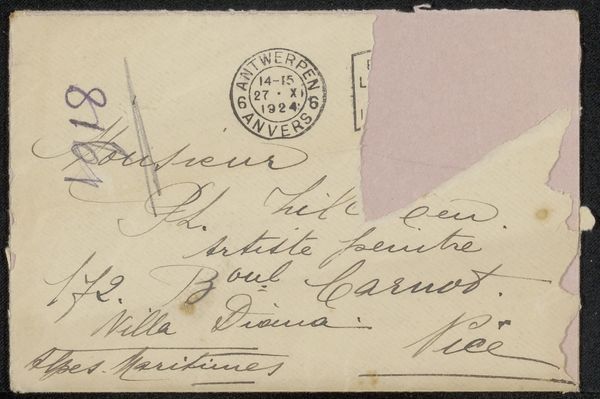 ANTWERPEN
14-15
6 27 · XI 6
1924
ANVERS
1918
Monsieur
Ph. Zilcken
artiste peintre
172. Boul Carnot.
Villa Diana.
Nice
Alpes. Maritimes